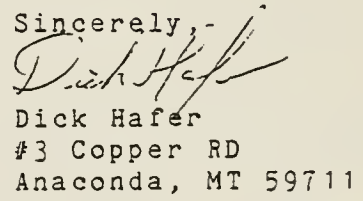 Sincerely,-
Dick Hafer
Dick Hafer
#3 Copper RD
Anaconda, MT 59711